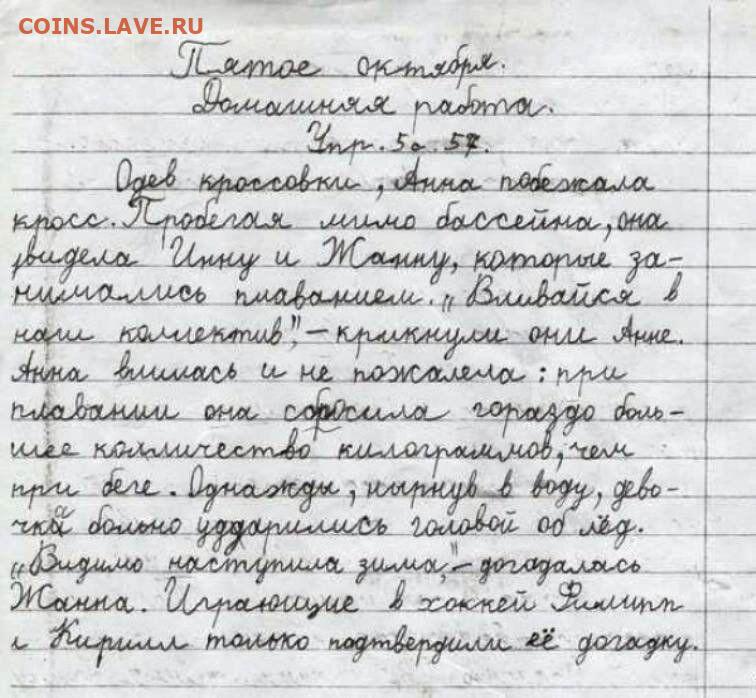 COINS.LAVE.RU
Пятое октября.
Домашняя работа.
Упр. 5а. 57.
Одев кроссовки, Анна побежала
кросс. Пробегая мимо бассейна, она
увидела Инну и Жанну, которые за-
нимались плаванием. „Вливайся в
наш коллектив", – крикнули они Анне.
Анна влилась и не пожалела: при
плавании она сбросила гораздо боль-
шее количество килограммов, чем
при беге. Однажды, нырнув в воду, дево-
чка больно ударились головой об лёд.
„Видимо наступила зима," – догадалась
Жанна. Играющие в хоккей Филипп
и Кирилл только подтвердили её догадку.